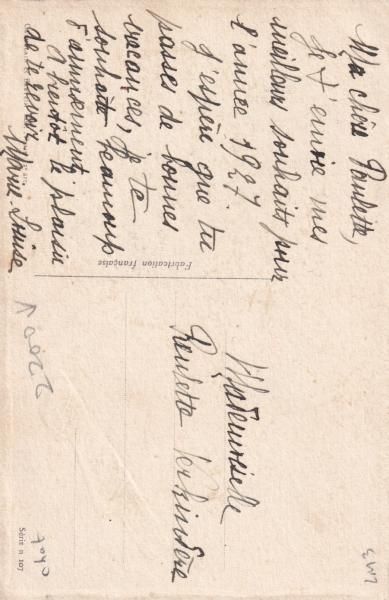 Ma chère Paulette,
Je t'envoie mes
meilleurs souhaits pour
l'année 1927.
J'espère que tu
passes de bonnes
vacances, je te
souhaite beaucoup
d'amusement.
A bientôt le plaisir
de te revoir
Marie-Louise
Fabrication française
Mademoiselle
Paulette
Série n 107